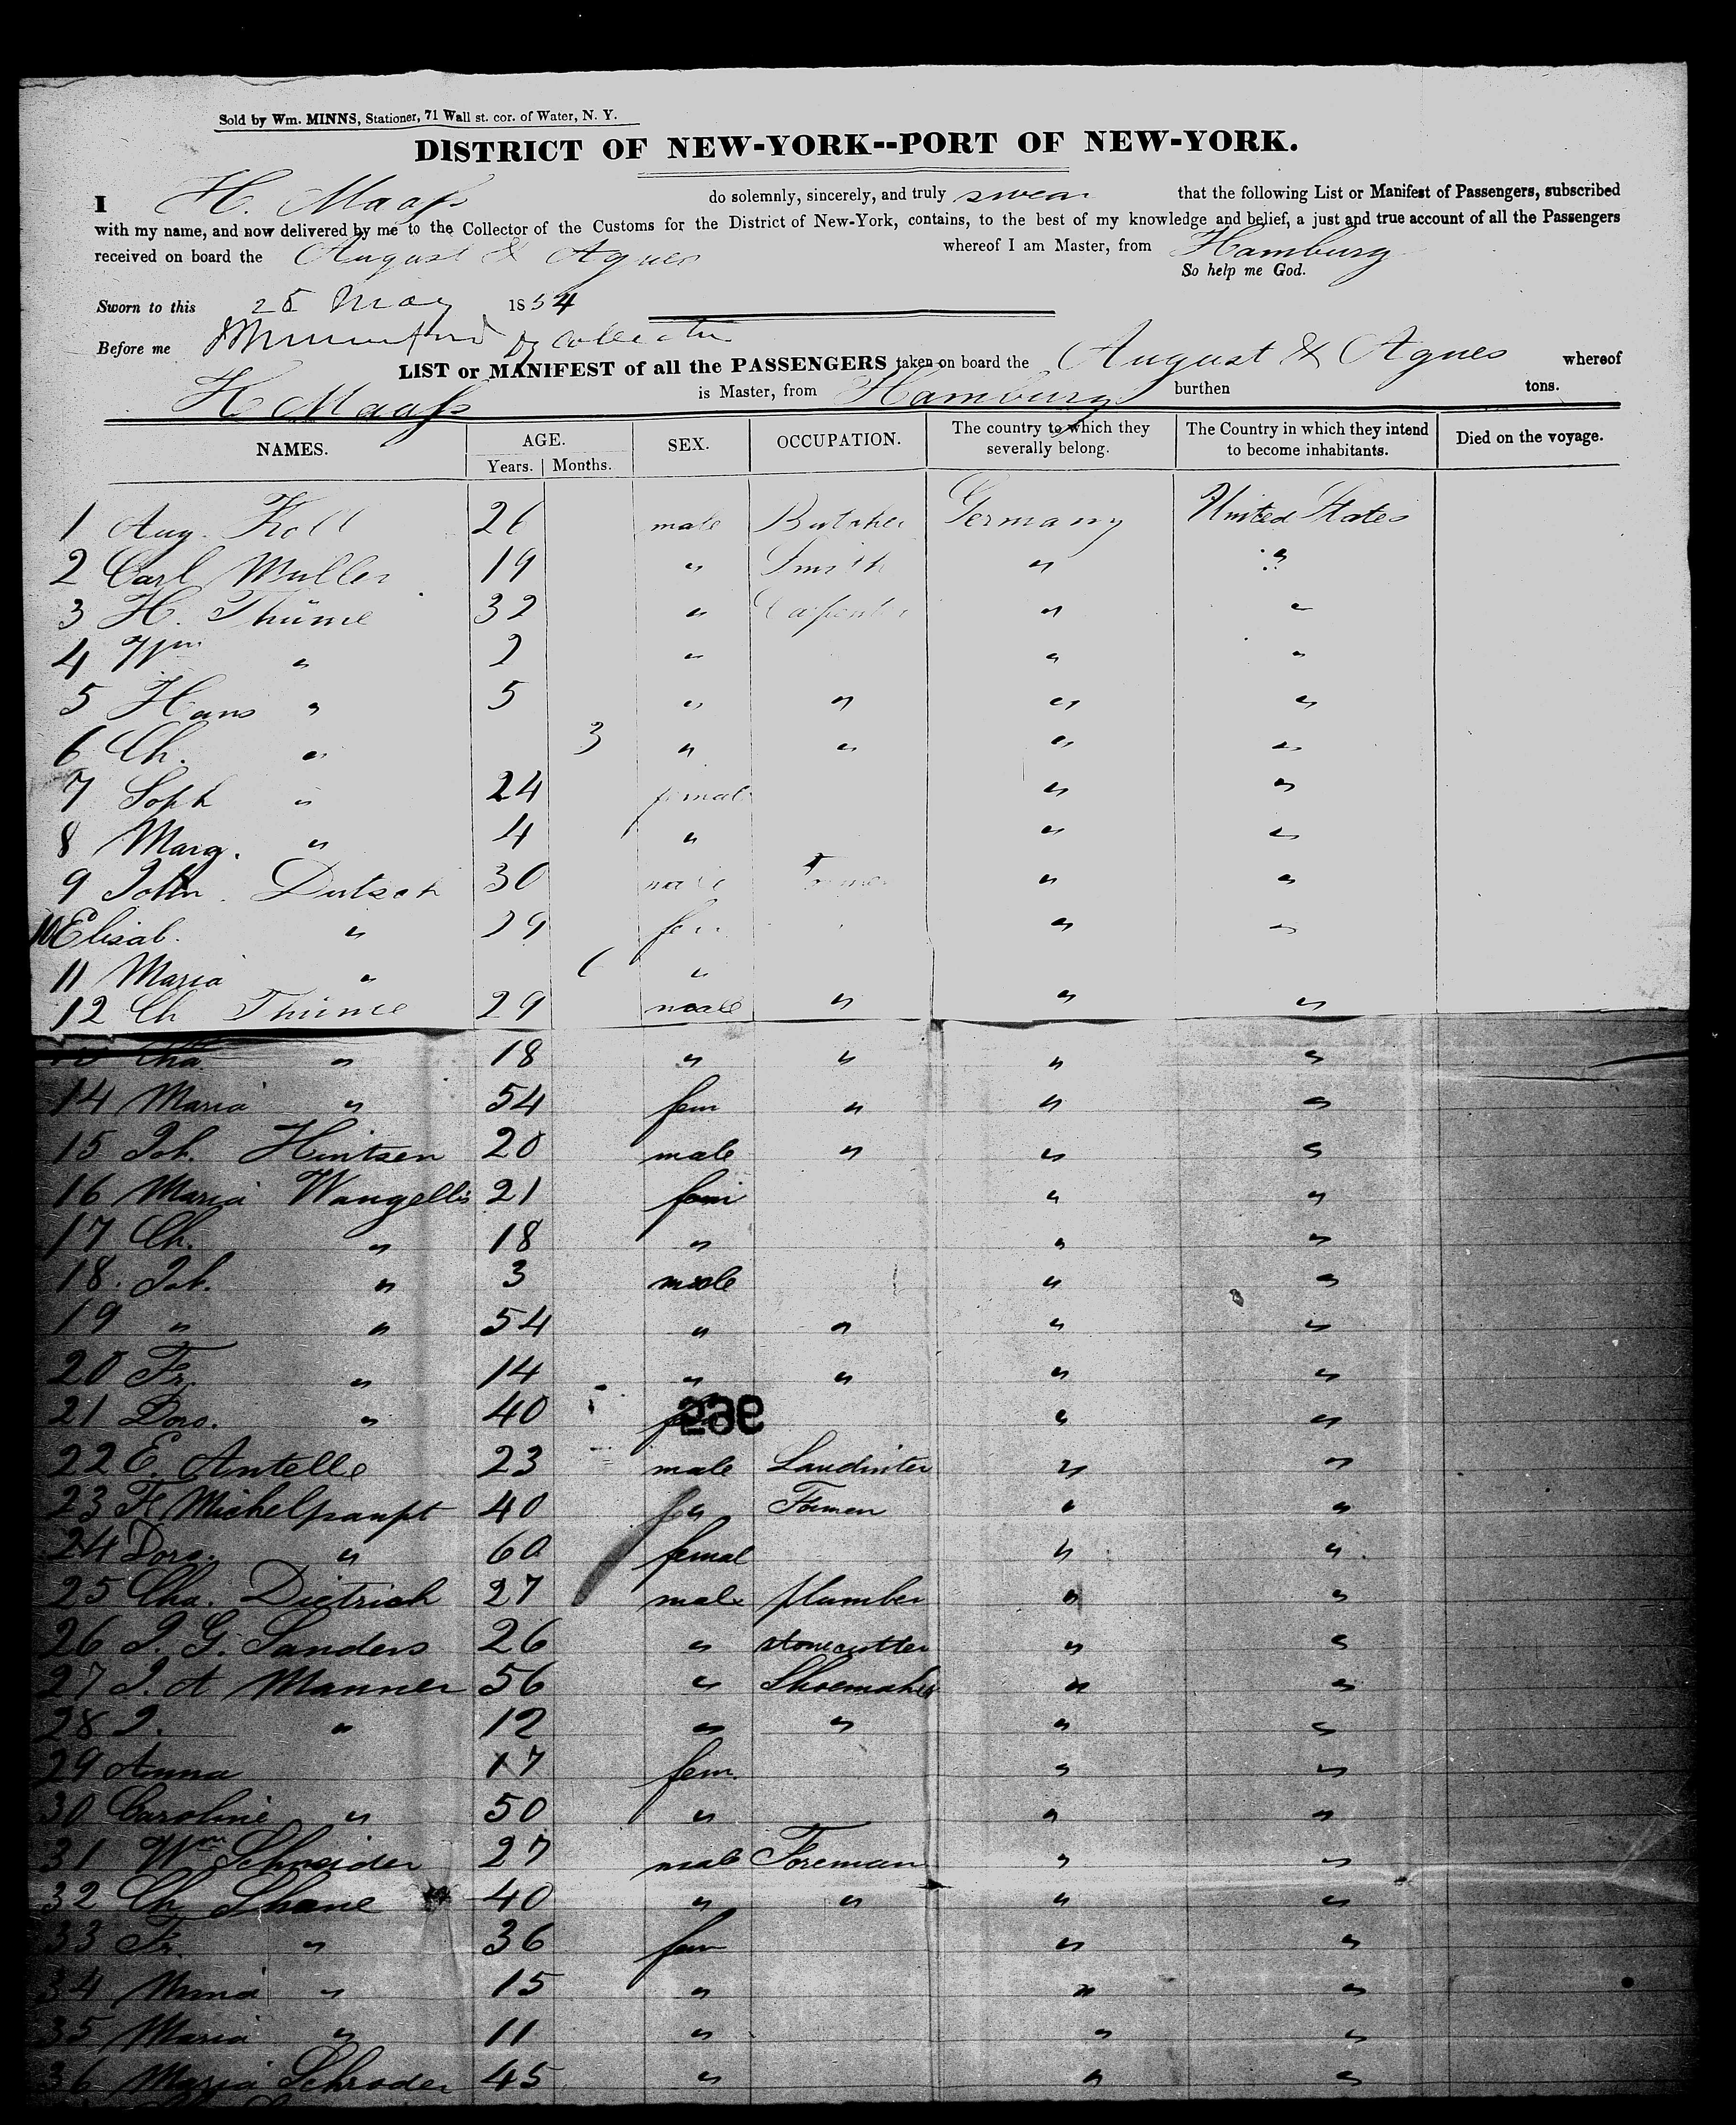 Sold by Wm. MINNS, Stationer, 71 Wall st. cor. of Water, N. Y.
DISTRICT OF NEW-YORK--PORT OF NEW-YORK.
I H. Maass do solemnly, sincerely, and truly swear that the following List or Manifest of Passengers, subscribed
with my name, and now delivered by me to the Collector of the Customs for the District of New-York, contains, to the best of my knowledge and belief, a just and true account of all the Passengers
received on board the August & Agnes whereof I am Master, from Hamburg
So help me God.
Sworn to this 25 May 1854
Before me
LIST or MANIFEST of all the PASSENGERS taken on board the August & Agnes whereof
H Maass is Master, from Hamburg burthen tons.
NAMES. AGE. Years. Months. SEX. OCCUPATION. The country to which they severally belong. The Country in which they intend to become inhabitants. Died on the voyage.
1 Aug. Koll 26 male Butcher Germany United States
2 Carl Muller 19 " Smith " "
3 H. Thüme 32 " Carpenter " "
4 Wm " 2 " " "
5 Hans " 5 " " " "
6 Ch. " 3 " " " "
7 Soph " 24 female " "
8 Marg. " 4 " " "
9 John Dutsch 30 male " "
10 Elisab. " 29 fem " "
11 Maria " "
12 Ch Thüme 29 male " " "
Cha " 18 " " " "
14 Maria " 54 fem " " "
15 Joh. Hintzen 20 male " " "
16 Maria Wangells 21 fem " "
17 Ch. " 18 " " "
18. Joh. " 3 male " "
19 " " 54 " " " "
20 Fr. " 14 " " " "
21 Doro. " 40 " "
22 E. Antelle 23 male " "
23 Michelpaupt 40 " " "
24 Doro. " 60 femal " "
25 Cha. Dietrich 27 male plumber " "
26 J. G. Sanders 26 " stonecutter " "
27 J. A Manner 56 " Shoemaker " "
28 J. " 12 " " " "
29 Anna 17 fem. " "
30 Caroline " 50 " " "
31 Wm Schneider 27 male Foreman " "
32 Ch Shane 40 " " " "
33 Fr. " 36 fem " "
34 Mina " 15 " " "
35 Maria " 11 " " "
36 Maria Schroder 45 " " "